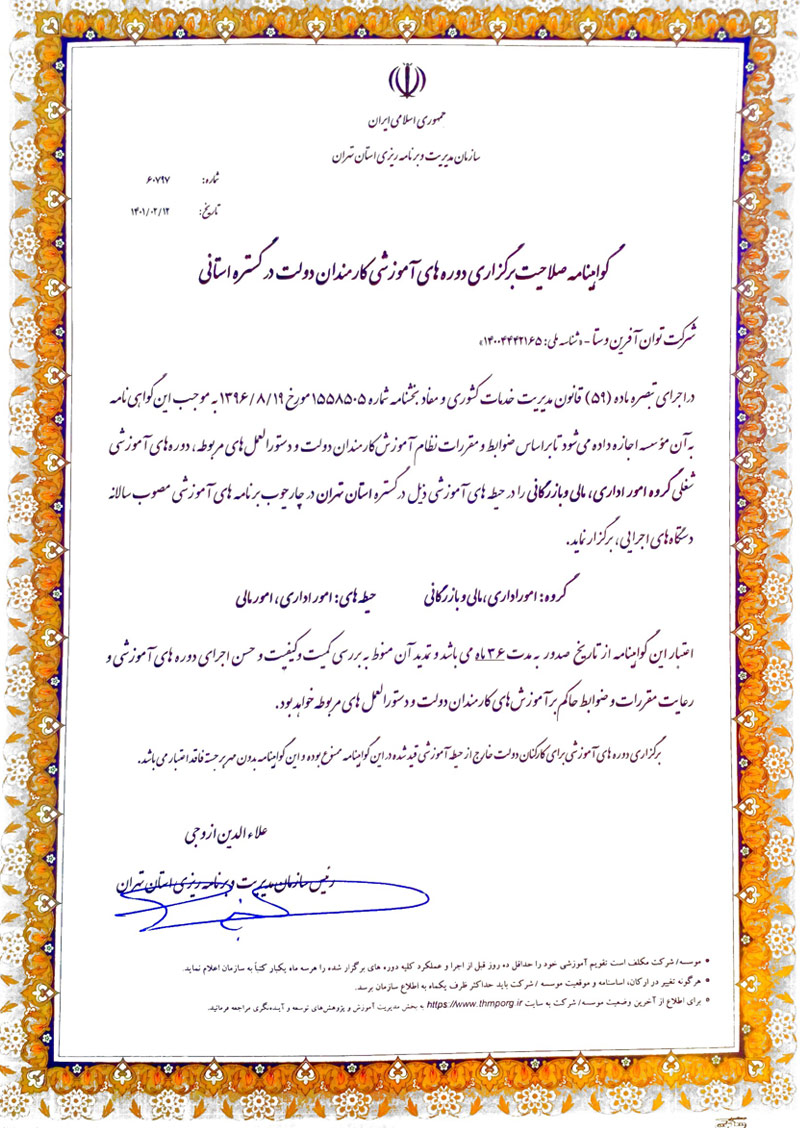 جمهوری اسلامی ایران
سازمان مدیریت و برنامه ریزی استان تهران
شماره: ۶۰۷۹۷
تاریخ: ۱۴۰۱/۰۲/۱۲
گواهینامه صلاحیت برگزاری دوره های آموزشی کارمندان دولت در گستره استانی
شرکت توان آفرین وستا - «شناسه ملی: ۱۴۰۰۴۴۴۲۱۶۵»
در اجرای تبصره ماده (۵۹) قانون مدیریت خدمات کشوری و مفاد بخشنامه شماره ۱۵۵۸۵۰۵ مورخ ۱۳۹۶/۸/۱۹ به موجب این گواهی نامه
به آن مؤسسه اجازه داده می شود تا بر اساس ضوابط و مقررات نظام آموزش کارمندان دولت و دستورالعمل های مربوطه، دوره های آموزشی
شغلی گروه امور اداری، مالی و بازرگانی را در حیطه های آموزشی ذیل در گستره استان تهران در چارچوب برنامه های آموزشی مصوب سالانه
دستگاه های اجرایی، برگزار نماید.
گروه: امور اداری، مالی و بازرگانی حیطه های: امور اداری، امور مالی
اعتبار این گواهینامه از تاریخ صدور به مدت ۳۶ ماه می باشد و تمدید آن منوط به بررسی کمیت و کیفیت و حسن اجرای دوره های آموزشی و
رعایت مقررات و ضوابط حاکم بر آموزش های کارمندان دولت و دستورالعمل های مربوطه خواهد بود.
برگزاری دوره های آموزشی برای کارکنان دولت خارج از حیطه آموزشی قید شده در این گواهینامه ممنوع بوده و این گواهینامه بدون مهر برجسته فاقد اعتبار می باشد.
علاءالدین ازوجی
رئیس سازمان مدیریت و برنامه ریزی استان تهران
• موسسه/ شرکت مکلف است تقویم آموزشی خود را حداقل ده روز قبل از اجرا و عملکرد کلیه دوره های برگزار شده را هر سه ماه یکبار کتباً به سازمان اعلام نماید.
• هرگونه تغییر در ارکان، اساسنامه و موقعیت موسسه / شرکت باید حداکثر ظرف یکماه به اطلاع سازمان برسد.
• برای اطلاع از آخرین وضعیت موسسه/ شرکت به سایت https://www.thmporg.ir به بخش مدیریت آموزش و پژوهش‌های توسعه و آینده‌نگری مراجعه فرمائید.